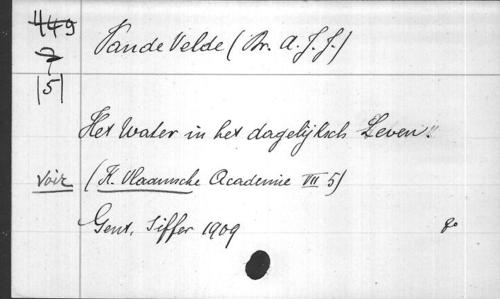 449
7
|5|
Van de Velde (Dr. A. J. J.)
Het Water in het dagelijksch Leven.
voir (K. Vlaamsche Academie VII 5)
Gent, Siffer 1909
8o